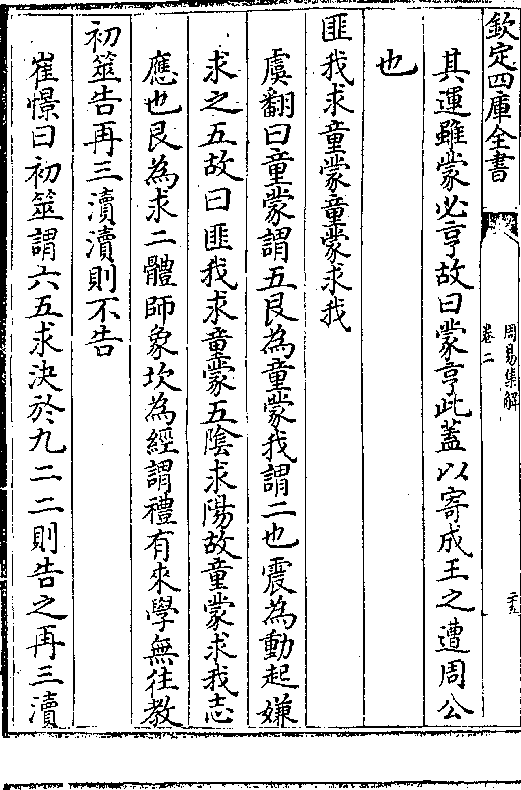 欽定四庫全書
周易集解
卷二
二十九
其運雖蒙必亨故曰蒙亨此蓋以寄成王之遭周公
也
匪我求童蒙童蒙求我
虞翻曰童蒙謂五艮為童蒙我謂二也震為動起嫌
求之五故曰匪我求童蒙五陰求陽故童蒙求我志
應也艮為求二體師象坎為經謂禮有來學無往教
初筮告再三瀆瀆則不告
崔憬曰初筮謂六五求決於九二二則告之再三瀆